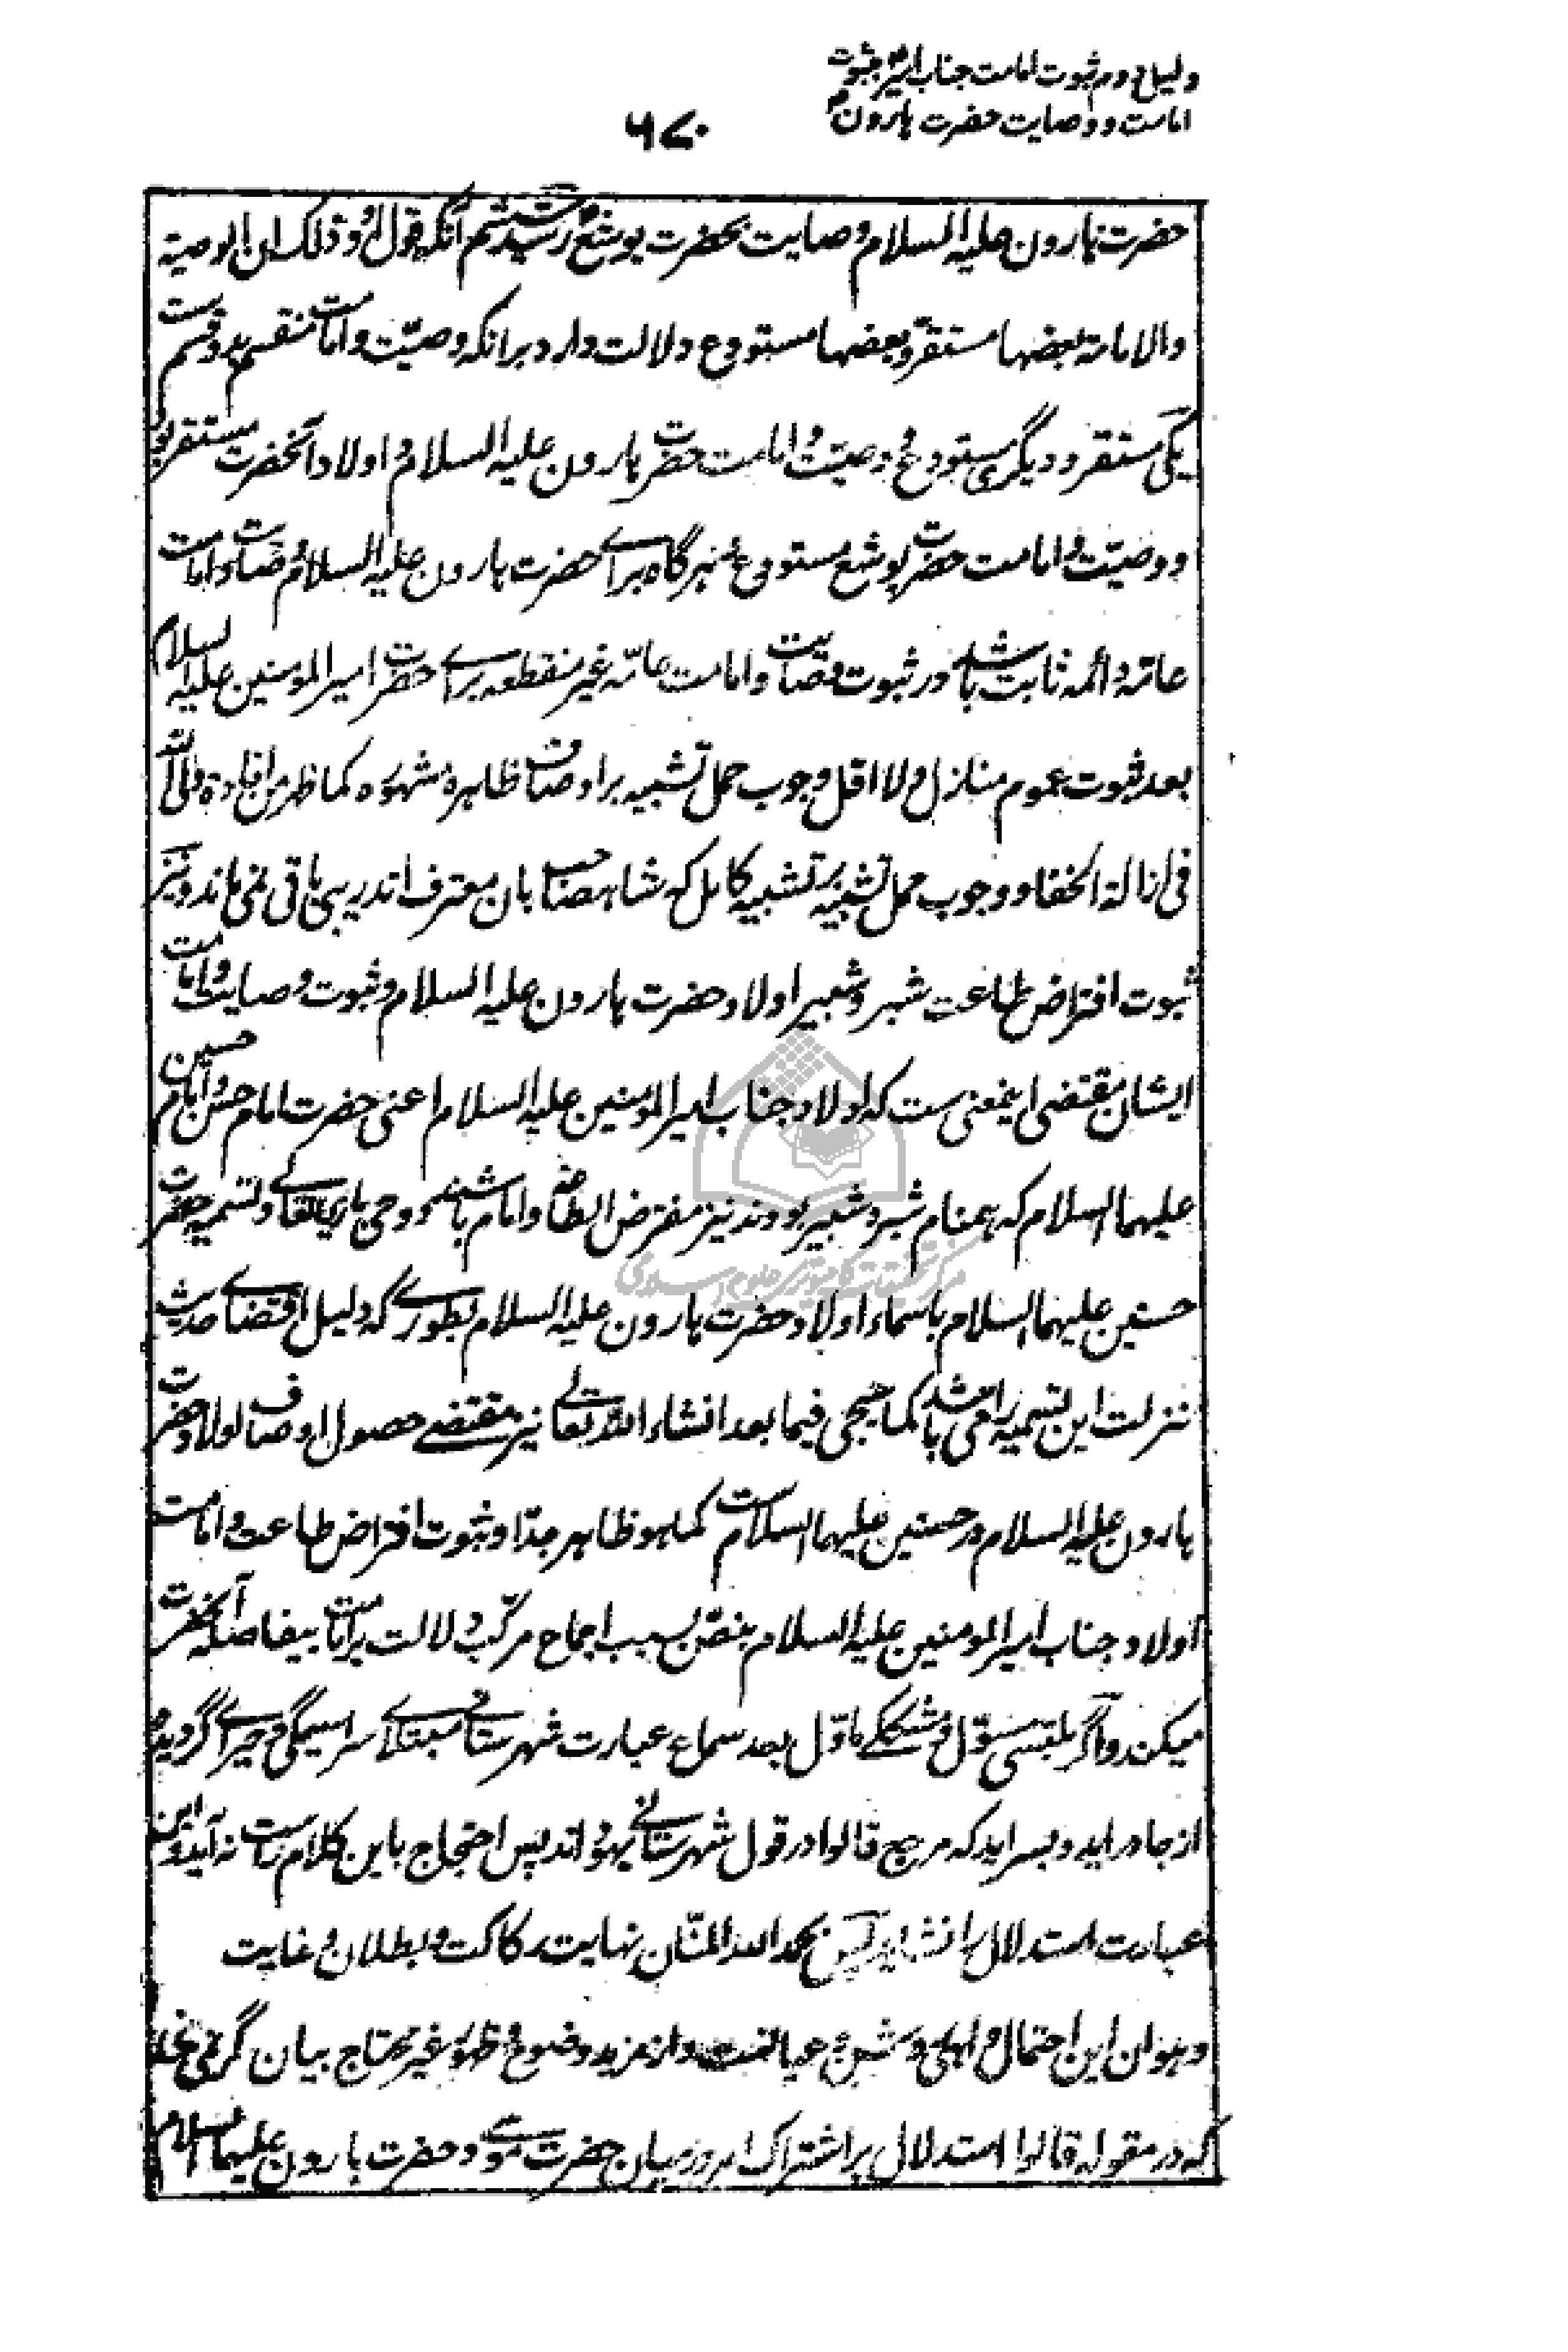 دلیل دوم ثبوت امامت جناب امیرؑ بثبوت
امامت و وصایت حضرت هارونؑ
۶۷۰
حضرت هارون علیه السلام وصایت بحضرت یوشع رسید ششم آنکه قول او و ذلک ان الوصیة
والامامة بعضها مستقر و بعضها مستودع دلالت دارد برانکه وصیّت و امامت منقسم بدو قسم ست
یکی مستقر و دیگری مستودع و وصیّت و امامت حضرت هارون علیه السلام و اولاد آنحضرت مستقر بود
و وصیّت و امامت حضرت یوشع مستودع و هرگاه برای حضرت هارون علیه السلام وصایت و امامت
عامّه دائمه ثابت باشد در ثبوت وصایت و امامت عامّه غیر منقطعه برای حضرت امیر المومنین علیه السلام
بعد ثبوت عموم منازل و لا اقل وجوب حمل تشبیه بر اوصاف ظاهرهٔ مشهوره کما ظهر من افادة ولی الله
فی ازالة الخفا و وجوب حمل تشبیه بر تشبیه کامل که شاهصاحب بان معترف اند ریبی باقی نمی ماند و نیز
ثبوت افتراض طاعت شبر و شبیر اولاد حضرت هارون علیه السلام و ثبوت وصایت و امامت
ایشان مقتضی اینمعنی ست که اولاد جناب امیر المومنین علیه السلام اعنی حضرت امام حسن و امام حسین
علیهما السلام که همنام شبر و شبیر بودند نیز مفترض الطاعة و امام باشند و وحی باری تعالی و تسمیه حضرت
حسنین علیهما السلام باسماء اولاد حضرت هارون علیه السلام بطوری که دلیل اقتضای حدیث
منزلت این تسمیه را می باشد کما سیجی فیما بعد انشاء الله تعالی نیز مقتضی حصول اوصاف اولاد حضرت
هارون علیه السلام در حسنین علیهما السلام ست کما هو ظاهر جدّا و ثبوت افتراض طاعت و امامت
اولاد جناب امیر المومنین علیه السلام بنصّ بسبب اجماع مرکّب دلالت بر امامت بیفاصله آنحضرت
میکند و اگر ملتبسی مسوّل و مشککی ماوّل بعد سماع عبارت شهرستانی مبتلای سراسیمگی و حیرا گردیده
از جا دراید و بسراید که مرجع قالوا در قول شهرستانی یهود اند پس احتجاج باین کلام راست نه آید و این
عبارت استدلال را نشاید پس بحمد الله المنّان نهایت رکاکت و بطلان و غایت
و هوان این احتمال عیان ست و از مزید وضوح و ظهور غیر محتاج بیان
که در مقوله قالوا استدلال بر اشتراک امر در میان حضرت موسی و حضرت هارون علیهما السلام